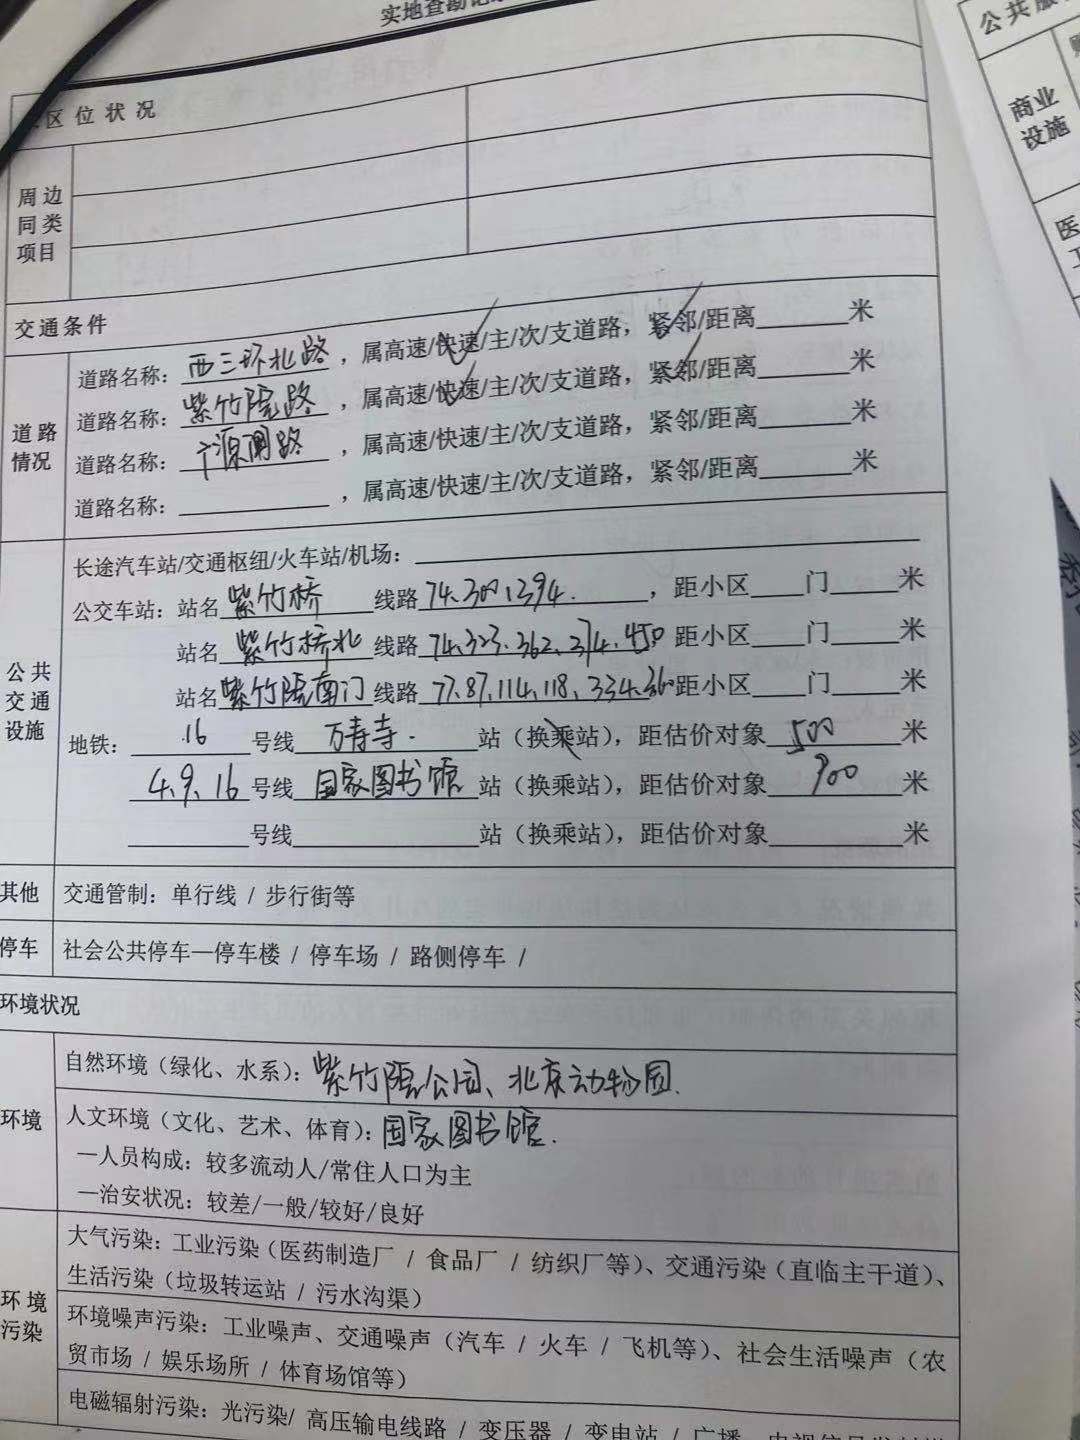 实地查勘记录
区位状况
周边
同类
项目
交通条件
道路
情况
道路名称：西三环北路，属高速/快速/主/次/支道路，紧邻/距离______米
道路名称：紫竹院路，属高速/快速/主/次/支道路，紧邻/距离______米
道路名称：广源闸路，属高速/快速/主/次/支道路，紧邻/距离______米
道路名称：______，属高速/快速/主/次/支道路，紧邻/距离______米
公共
交通
设施
长途汽车站/交通枢纽/火车站/机场：______
公交车站：站名紫竹桥线路74.300.394.，距小区____门____米
站名紫竹桥北线路74.323.362.374.450距小区____门____米
站名紫竹院南门线路77.87.114.118.334.360距小区____门____米
地铁：16号线万寿寺.站（换乘站），距估价对象500米
4.9.16号线国家图书馆站（换乘站），距估价对象900米
______号线______站（换乘站），距估价对象______米
其他
交通管制：单行线 / 步行街等
停车
社会公共停车—停车楼 / 停车场 / 路侧停车 /
环境状况
环境
自然环境（绿化、水系）：紫竹院公园、北京动物园.
人文环境（文化、艺术、体育）：国家图书馆.
—人员构成：较多流动人/常住人口为主
—治安状况：较差/一般/较好/良好
环境
污染
大气污染：工业污染（医药制造厂 / 食品厂 / 纺织厂等）、交通污染（直临主干道）、
生活污染（垃圾转运站 / 污水沟渠）
环境噪声污染：工业噪声、交通噪声（汽车 / 火车 / 飞机等）、社会生活噪声（农
贸市场 / 娱乐场所 / 体育场馆等）
电磁辐射污染：光污染/ 高压输电线路 / 变压器 / 变电站 / 广播
公共服
商业
设施
医